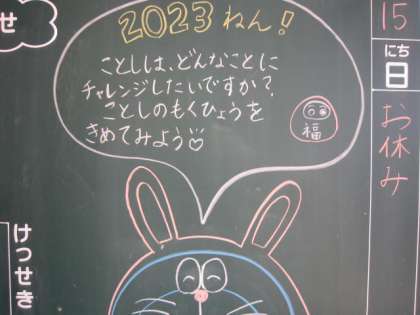 2023ねん!
ことしは、どんなことに
チャレンジしたいですか?
ことしのもくひょうを
きめてみよう
福
15
にち
日
お休み
せ
けっせき